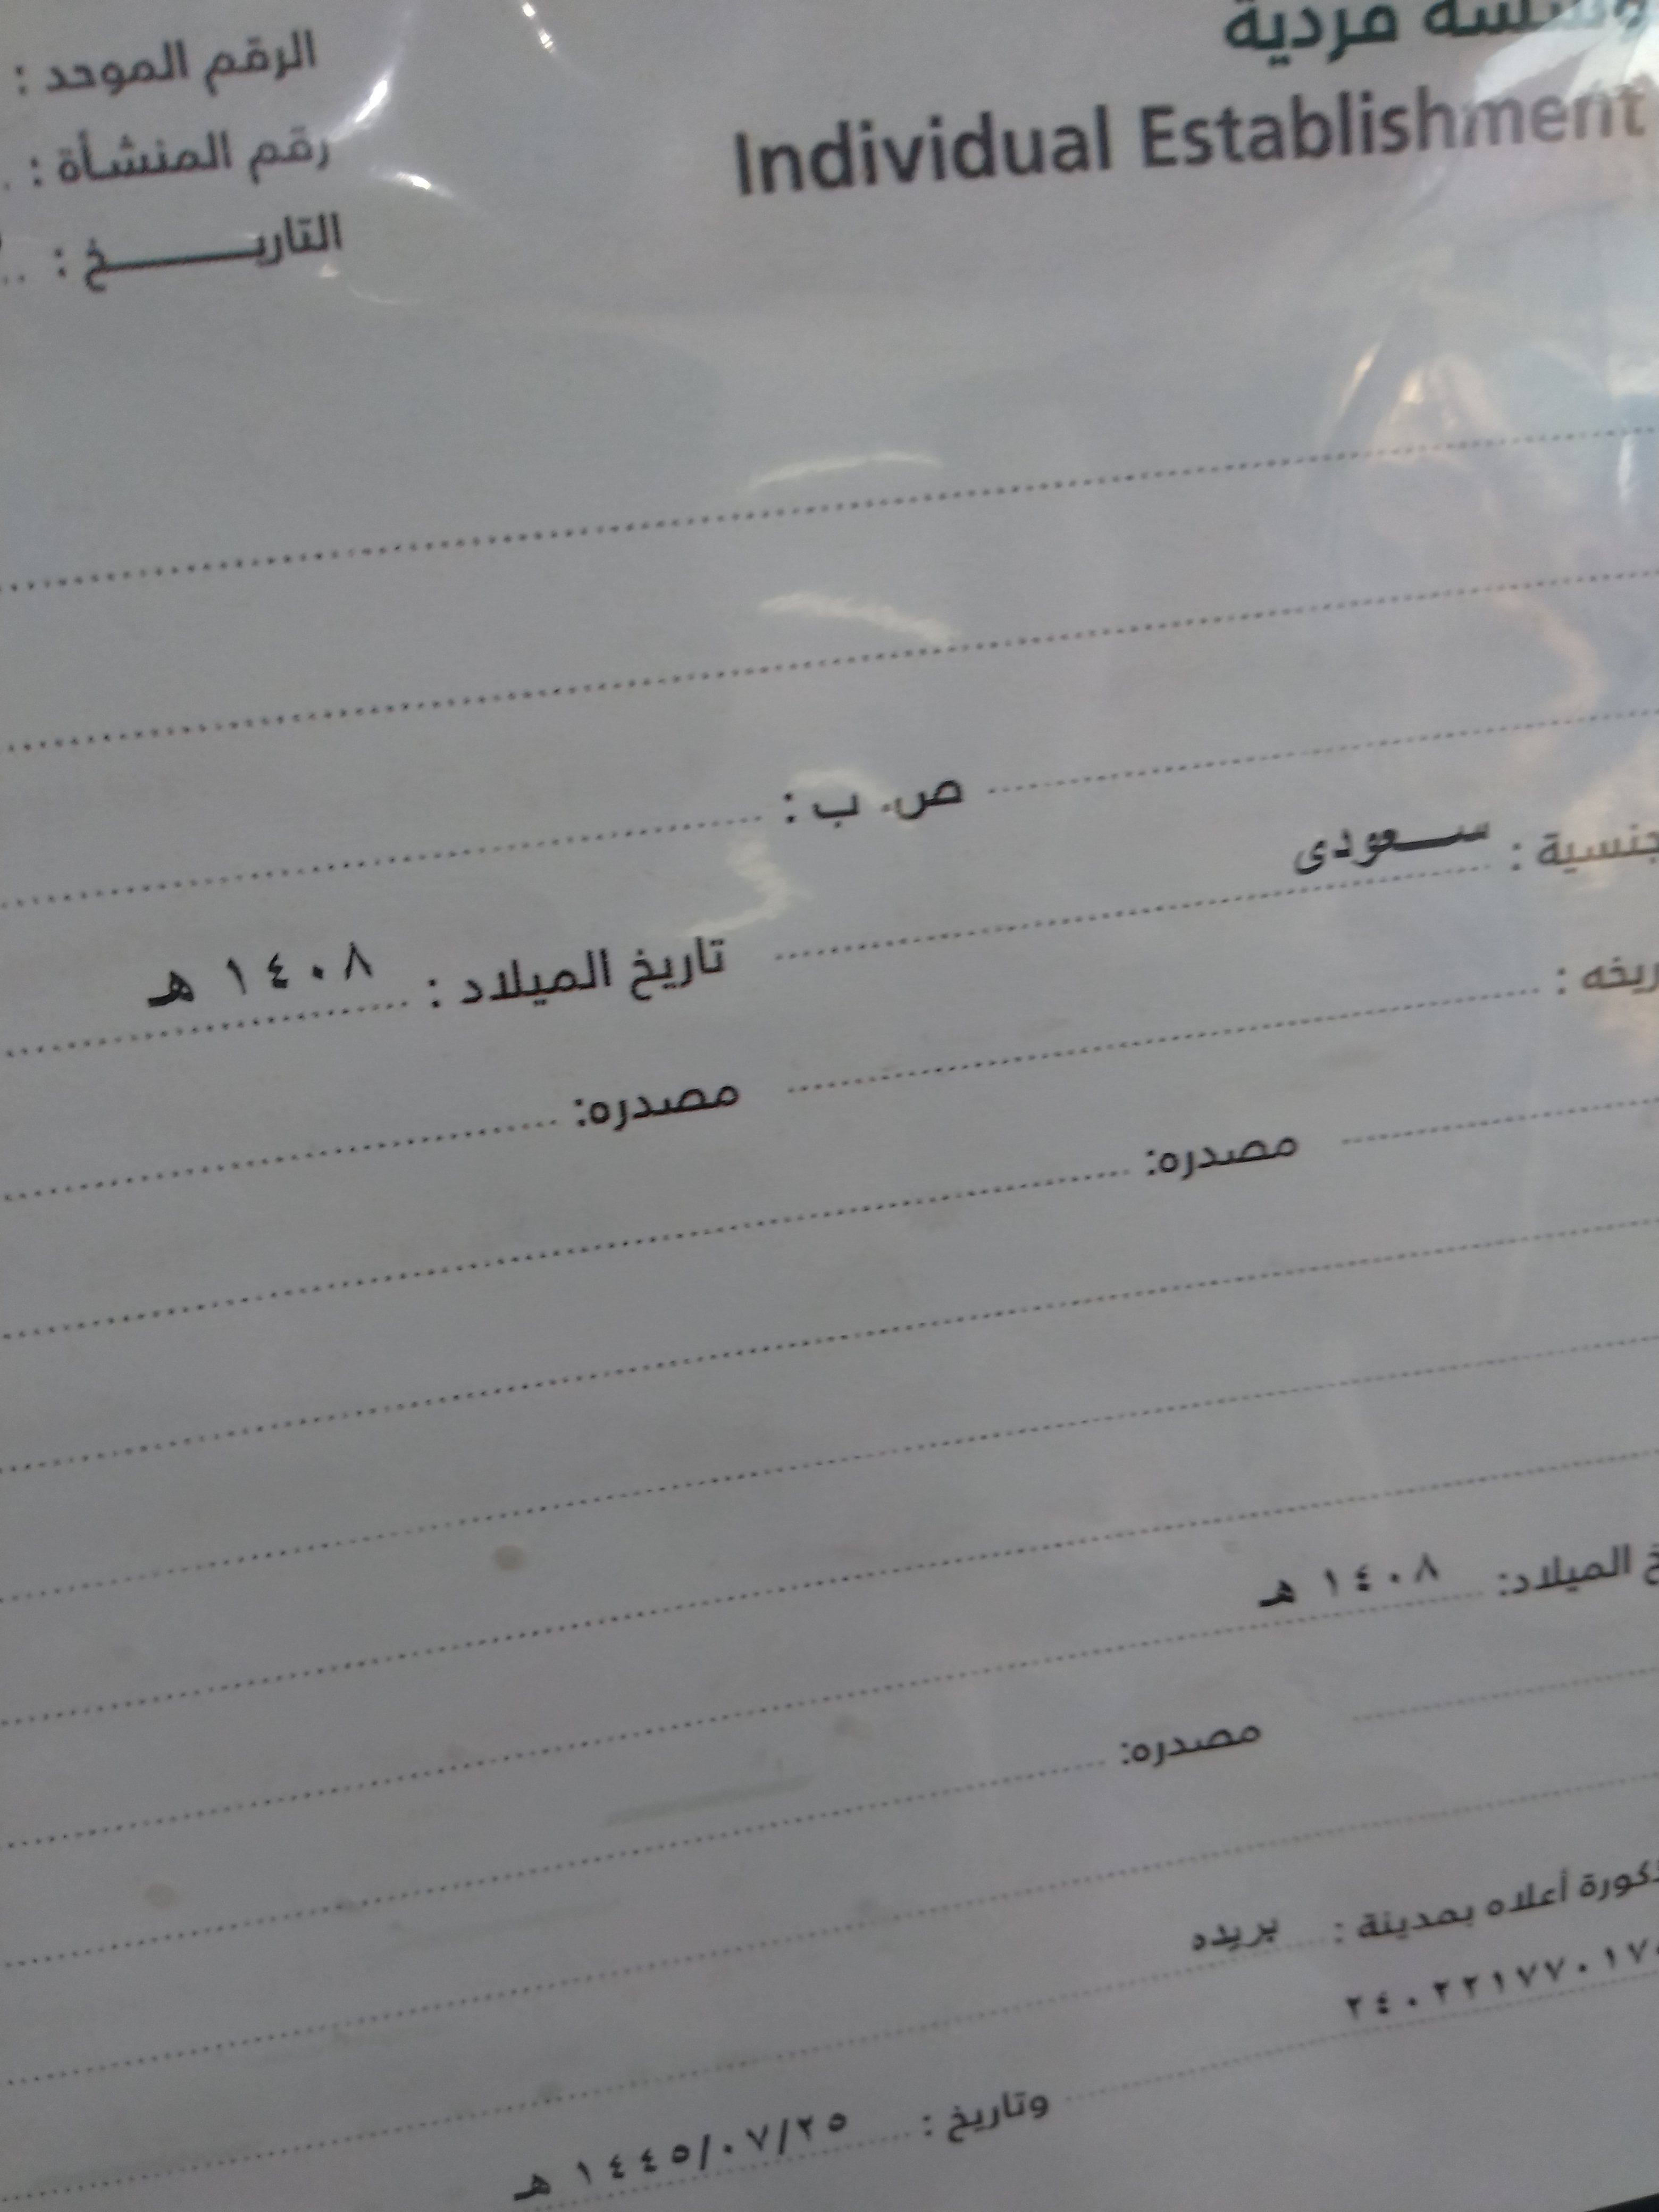 فردية
Individual Establishment
الرقم الموحد :
رقم المنشأة :
التاريـــــــخ :
ص. ب :
سعودى
تاريخ الميلاد : ١٤٠٨ هـ
مصدره:
مصدره:
الميلاد: ١٤٠٨ هـ
مصدره:
أعلاه بمدينة : بريده
وتاريخ : ١٤٤٥/٠٧/٢٥ هـ